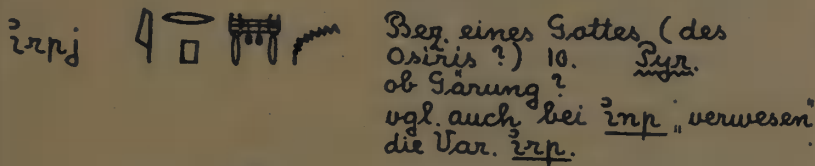 ꞽrpj 𓇋𓂋𓊪𓏳𓆰 Bez. eines Gottes (des
Osiris ?) 10. Pyr.
ob Gärung ?
vgl. auch bei ꞽnp „verwesen"
die Var. ꞽrp.